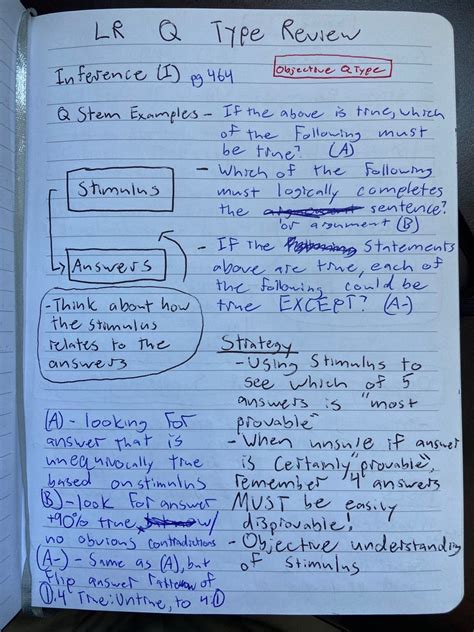 LR Q Type Review
Inference (I) pg 464
Objective Q Type
Q Stem Examples - If the above is true, which
of the Following must
be true? (A)
- Which of the Following
must logically completes
the sentence?
or argument (B)
- If the Statements
above are true, each of
the following could be
true EXCEPT? (A-)
Stimulus
Answers
- Think about how
the stimulus
relates to the
answers
Strategy
- Using Stimulus to
see which of 5
answers is "most
provable"
- When unsure if answer
is certainly "provable",
remember 4 answers
MUST be easily
disprovable!
- Objective understanding
of stimulus
(A) - looking for
answer that is
unequivocally true
based on stimulus
(B) - look for answer
+90% true w/
no obvious contradictions
(A-) - Same as (A), but
flip answer ratio of
1:4 True:Untrue, to 4:1